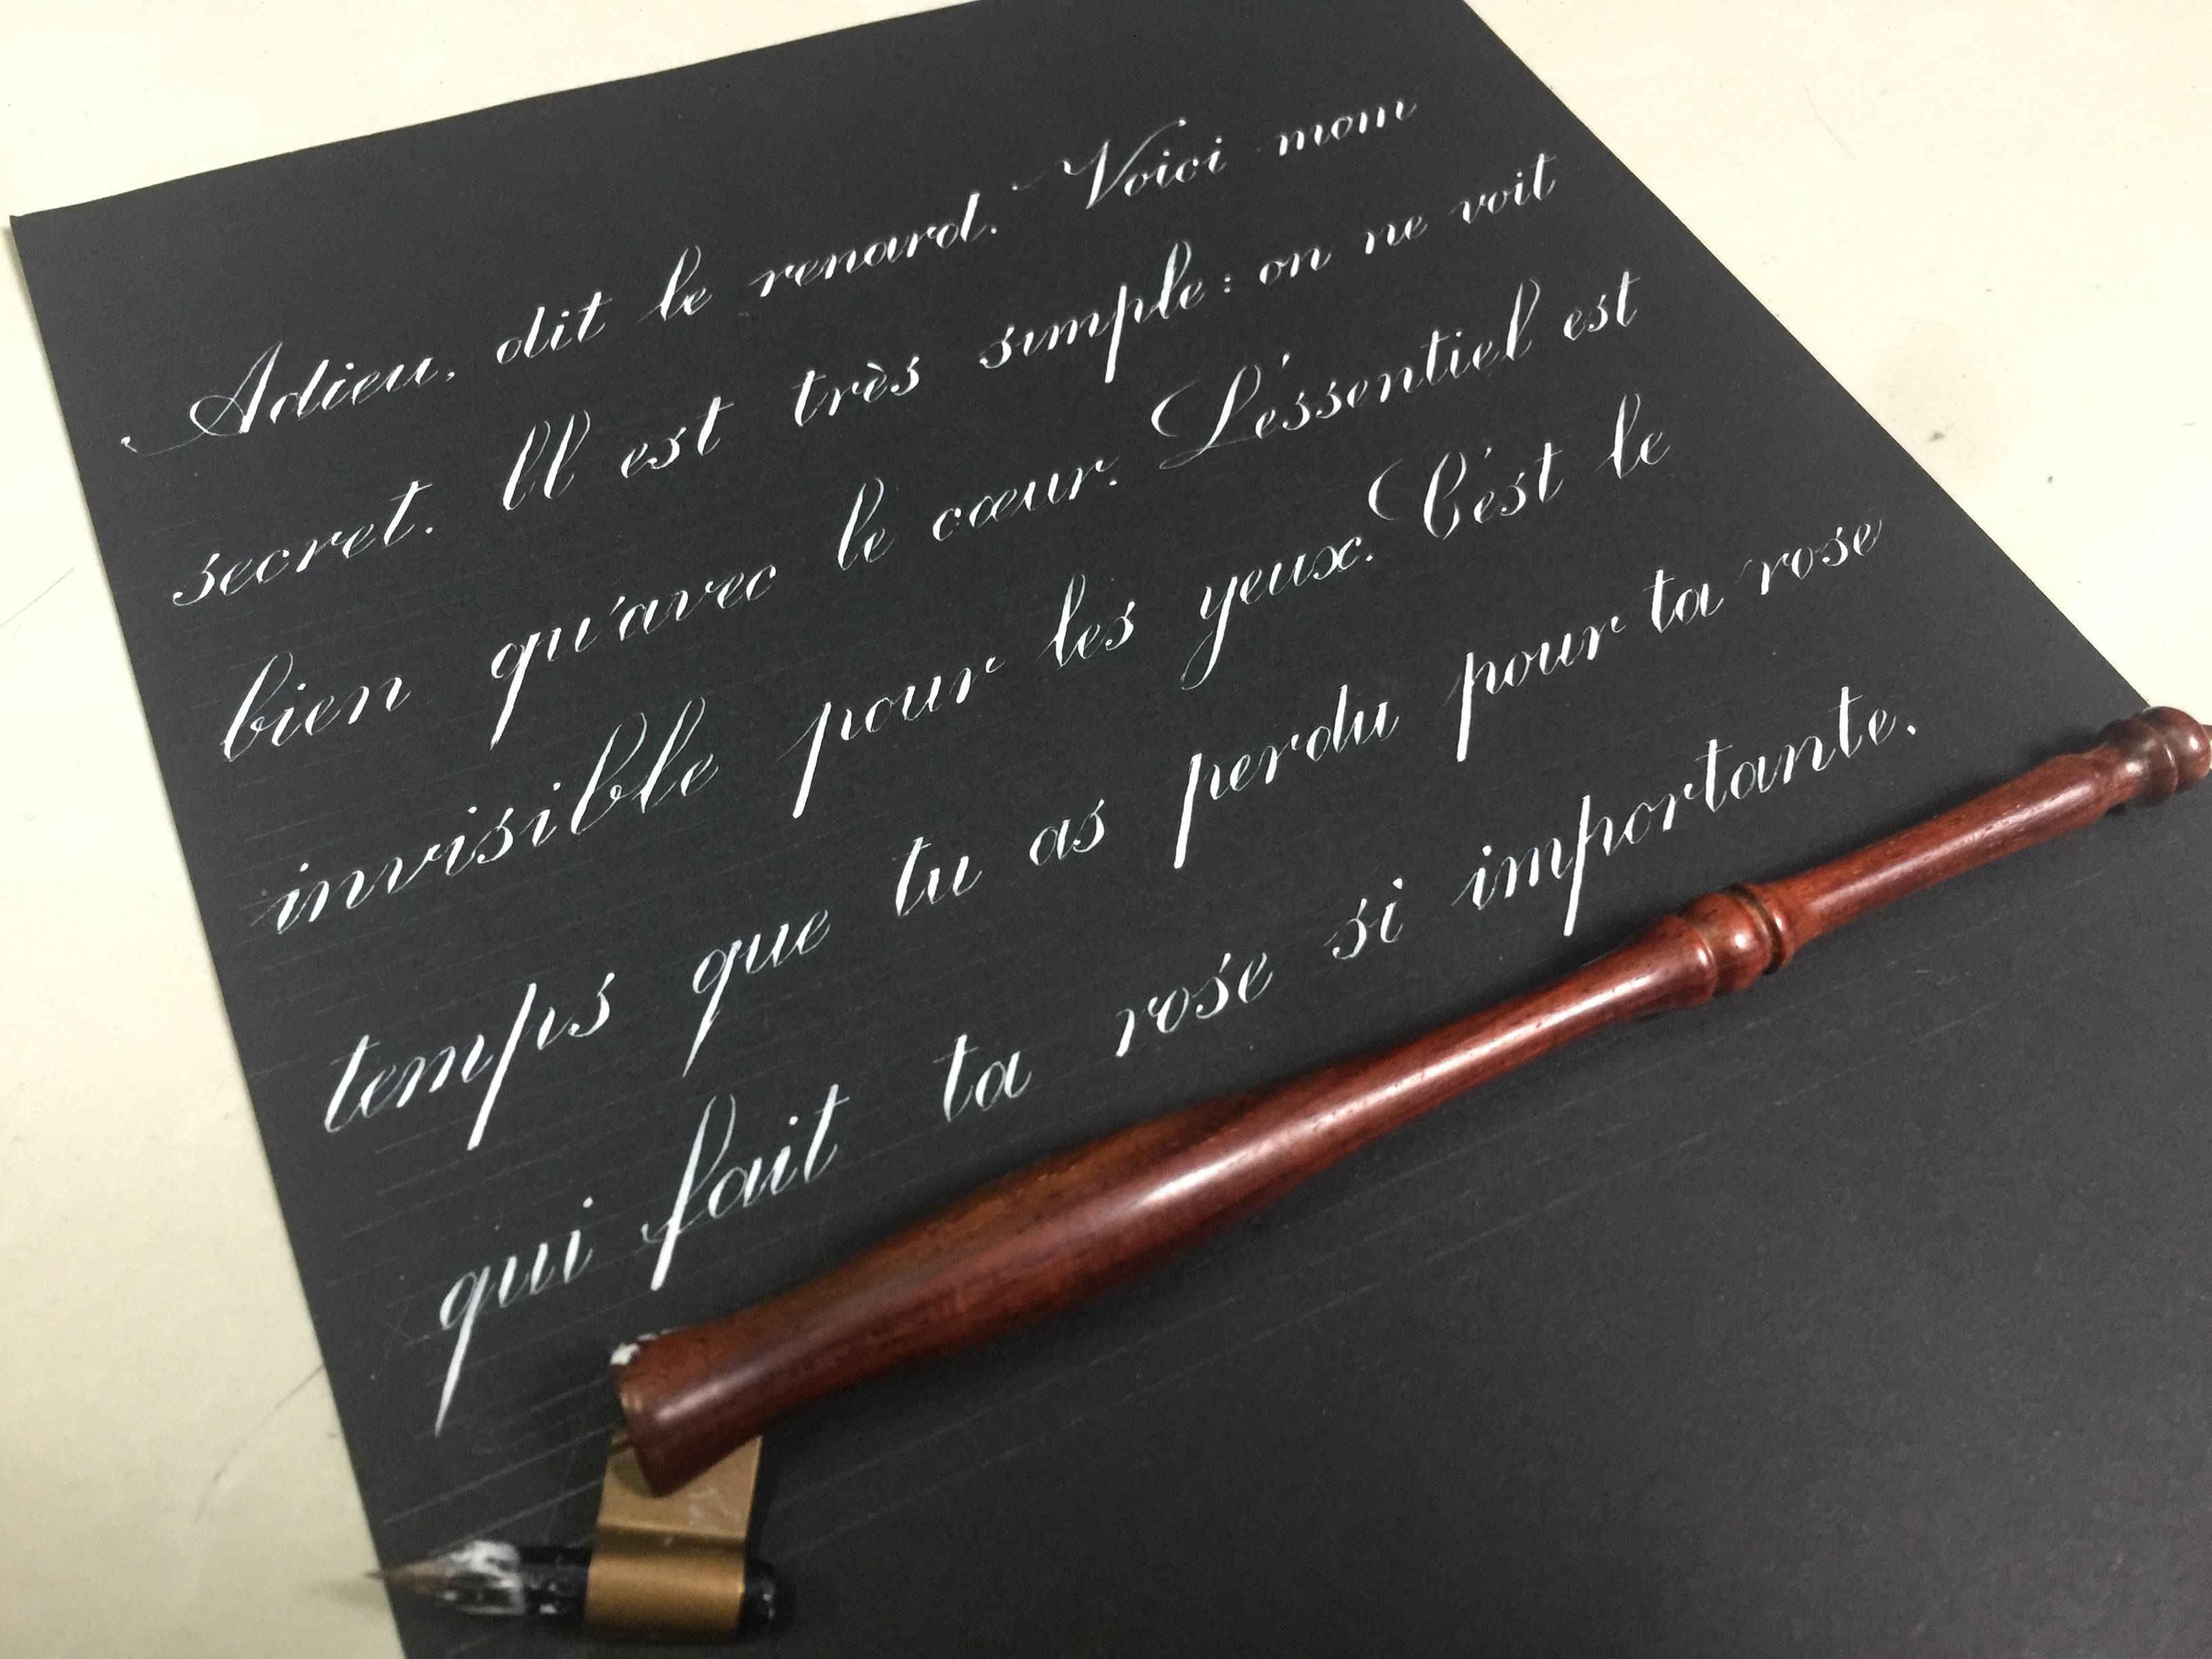 Adieu, dit le renard. Voici mom
secret. Il est très simple : on ne voit
bien qu'avec le cœur. L'essentiel est
invisible pour les yeux. C'est le
temps que tu as perdu pour ta rose
qui fait ta rose si importante.